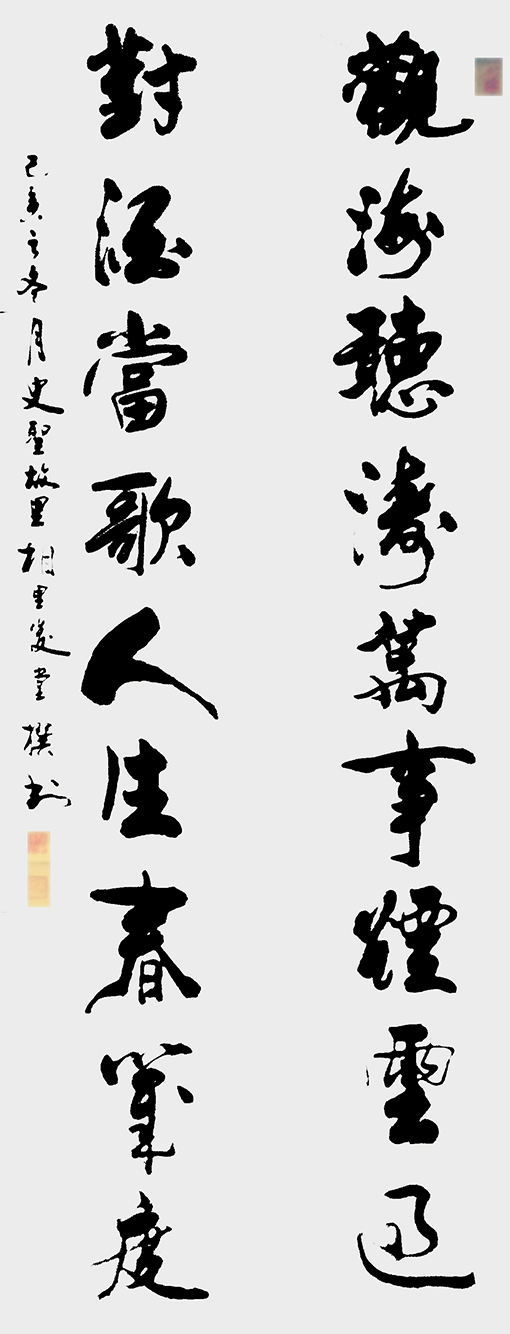 觀海聽濤萬事煙雲過
對酒當歌人生春度
己亥之冬月史聖故里相里堂撰书